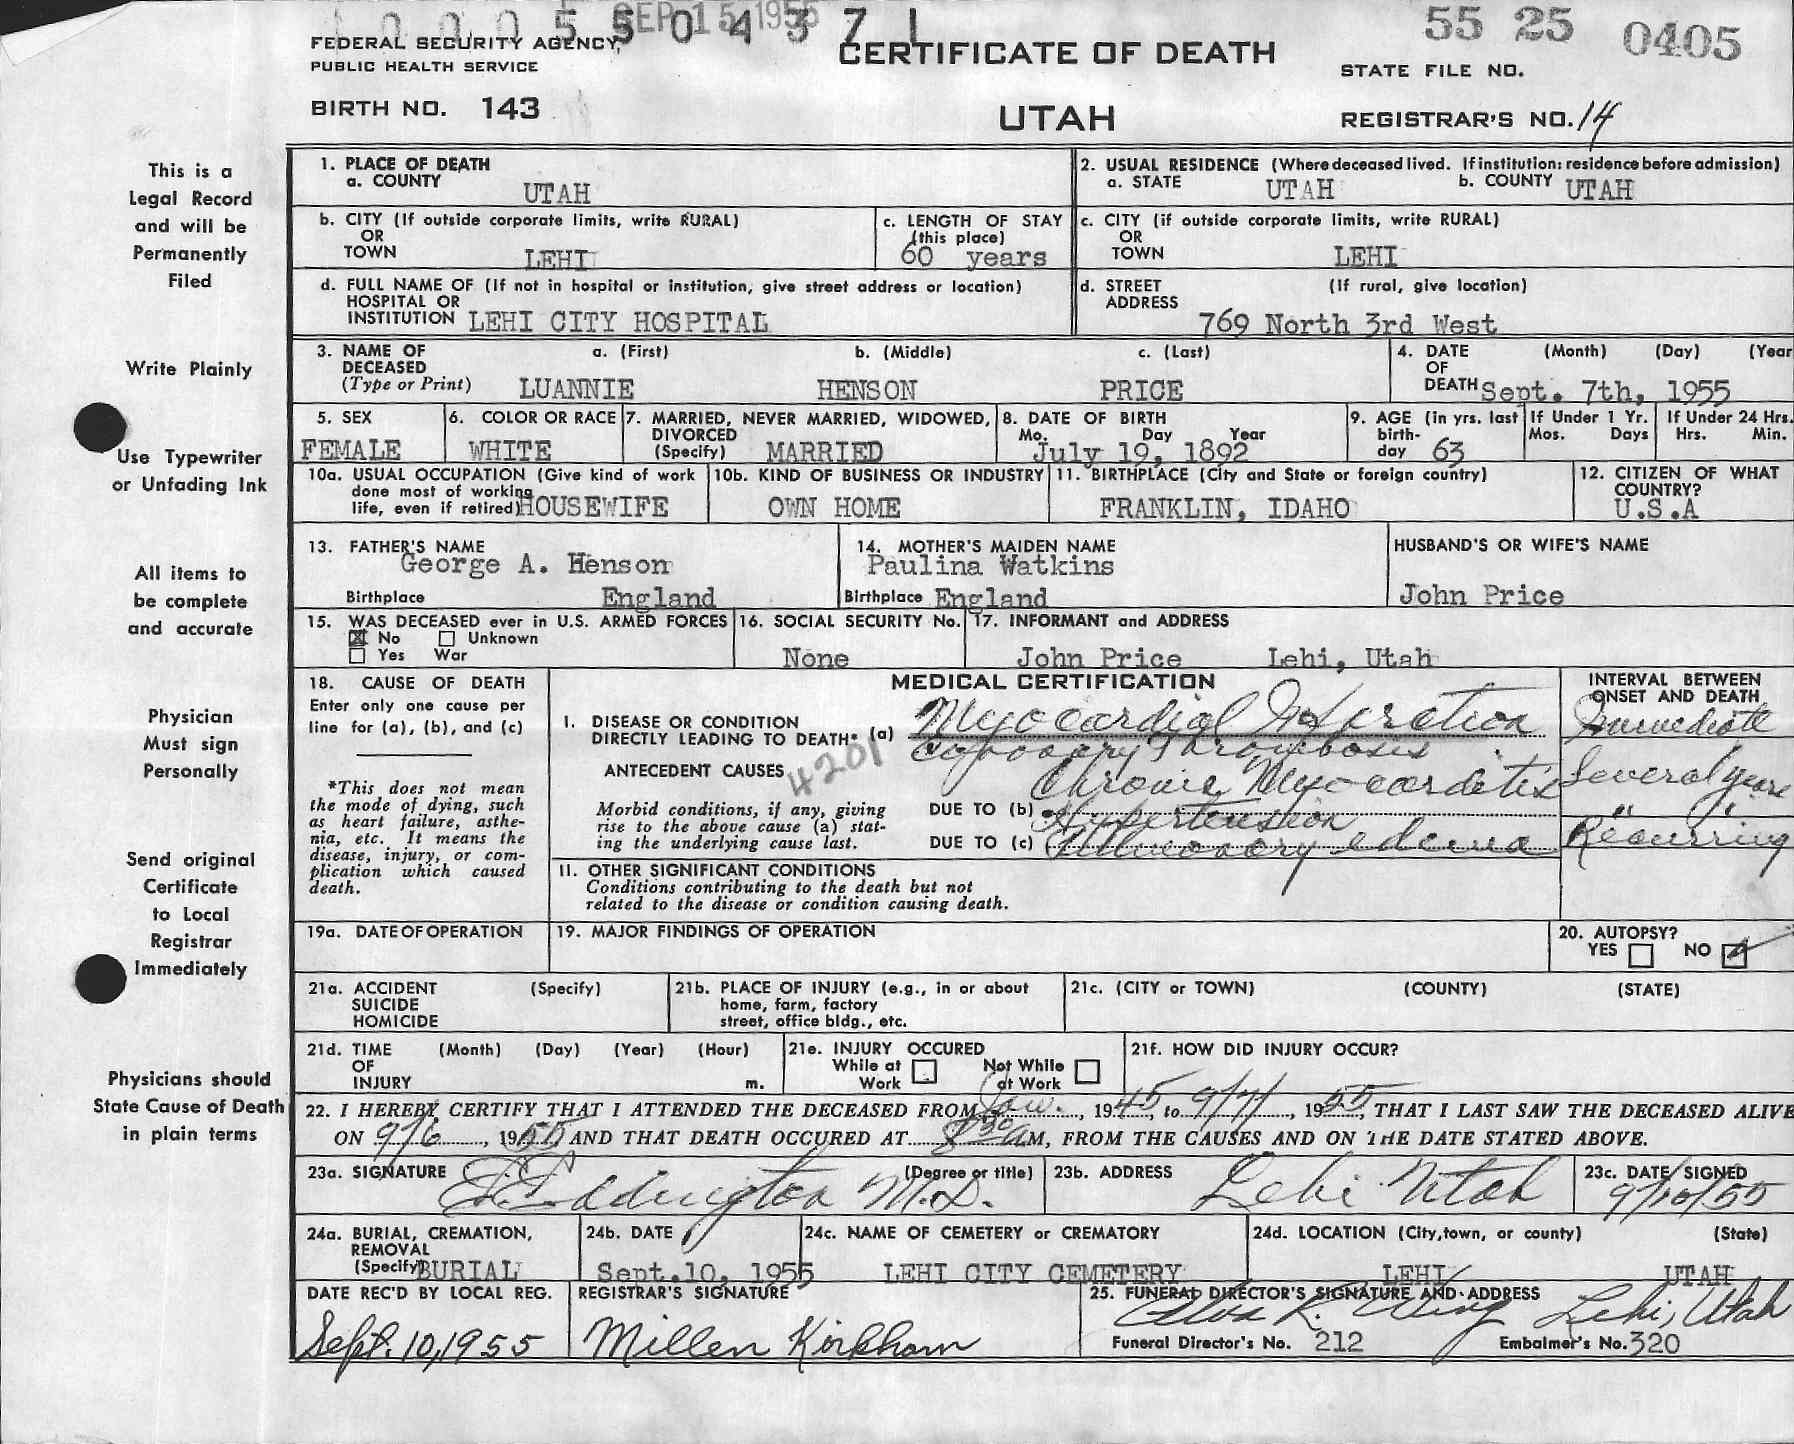 SEP 15 1955
0 0 0 5 5 0 4 3 7 1
55 25 0405
FEDERAL SECURITY AGENCY,
PUBLIC HEALTH SERVICE
CERTIFICATE OF DEATH
STATE FILE NO.
BIRTH NO. 143
UTAH
REGISTRAR'S NO. 14
This is a
Legal Record
and will be
Permanently
Filed
Write Plainly
Use Typewriter
or Unfading Ink
All items to
be complete
and accurate
Physician
Must sign
Personally
Send original
Certificate
to Local
Registrar
Immediately
Physicians should
State Cause of Death
in plain terms
1. PLACE OF DEATH
a. COUNTY UTAH
2. USUAL RESIDENCE (Where deceased lived. If institution: residence before admission)
a. STATE UTAH b. COUNTY UTAH
b. CITY (If outside corporate limits, write RURAL)
OR
TOWN LEHI
c. LENGTH OF STAY
(this place)
60 years
c. CITY (if outside corporate limits, write RURAL)
OR
TOWN LEHI
d. FULL NAME OF (If not in hospital or institution, give street address or location)
HOSPITAL OR
INSTITUTION LEHI CITY HOSPITAL
d. STREET (If rural, give location)
ADDRESS
769 North 3rd West
3. NAME OF a. (First) b. (Middle) c. (Last)
DECEASED
(Type or Print) LUANNIE HENSON PRICE
4. DATE (Month) (Day) (Year
OF
DEATH Sept. 7th, 1955
5. SEX
FEMALE
6. COLOR OR RACE
WHITE
7. MARRIED, NEVER MARRIED, WIDOWED,
DIVORCED
(Specify) MARRIED
8. DATE OF BIRTH
Mo. Day Year
July 19, 1892
9. AGE (in yrs. last
birth-
day 63
If Under 1 Yr.
Mos. Days
If Under 24 Hrs.
Hrs. Min.
10a. USUAL OCCUPATION (Give kind of work
done most of working
life, even if retired) HOUSEWIFE
10b. KIND OF BUSINESS OR INDUSTRY
OWN HOME
11. BIRTHPLACE (City and State or foreign country)
FRANKLIN, IDAHO
12. CITIZEN OF WHAT
COUNTRY?
U.S.A
13. FATHER'S NAME
George A. Henson
Birthplace England
14. MOTHER'S MAIDEN NAME
Paulina Watkins
Birthplace England
HUSBAND'S OR WIFE'S NAME
John Price
15. WAS DECEASED ever in U.S. ARMED FORCES
No Unknown
Yes War
16. SOCIAL SECURITY No.
None
17. INFORMANT and ADDRESS
John Price Lehi, Utah
18. CAUSE OF DEATH
Enter only one cause per
line for (a), (b), and (c)
*This does not mean
the mode of dying, such
as heart failure, asthe-
nia, etc. It means the
disease, injury, or com-
plication which caused
death.
MEDICAL CERTIFICATION
INTERVAL BETWEEN
ONSET AND DEATH
I. DISEASE OR CONDITION
DIRECTLY LEADING TO DEATH* (a) Myocardial
Immediate
Coronary Thrombosis
ANTECEDENT CAUSES 4201
Chronic Myocarditis Several years
Morbid conditions, if any, giving
rise to the above cause (a) stat-
ing the underlying cause last.
DUE TO (b) Hypertension " "
DUE TO (c) Pulmonary edema Recurring
II. OTHER SIGNIFICANT CONDITIONS
Conditions contributing to the death but not
related to the disease or condition causing death.
19a. DATE OF OPERATION
19. MAJOR FINDINGS OF OPERATION
20. AUTOPSY?
YES NO
21a. ACCIDENT (Specify)
SUICIDE
HOMICIDE
21b. PLACE OF INJURY (e.g., in or about
home, farm, factory
street, office bldg., etc.
21c. (CITY or TOWN) (COUNTY) (STATE)
21d. TIME (Month) (Day) (Year) (Hour)
OF
INJURY m.
21e. INJURY OCCURED
While at Not While
Work at Work
21f. HOW DID INJURY OCCUR?
22. I HEREBY CERTIFY THAT I ATTENDED THE DECEASED FROM Jan., 1945, to 9/7/, 1955, THAT I LAST SAW THE DECEASED ALIVE
ON 9/6, 1955 AND THAT DEATH OCCURED AT 8:30 AM, FROM THE CAUSES AND ON THE DATE STATED ABOVE.
23a. SIGNATURE (Degree or title)
E Eddington M.D.
23b. ADDRESS Lehi Utah
23c. DATE SIGNED
9/10/55
24a. BURIAL, CREMATION,
REMOVAL
(Specify) BURIAL
24b. DATE
Sept.10, 1955
24c. NAME OF CEMETERY or CREMATORY
LEHI CITY CEMETERY
24d. LOCATION (City, town, or county) (State)
LEHI UTAH
DATE REC'D BY LOCAL REG.
Sept. 10, 1955
REGISTRAR'S SIGNATURE
Millen Kirkham
25. FUNERAL DIRECTOR'S SIGNATURE AND ADDRESS
Alva R. Wing Lehi, Utah
Funeral Director's No. 212 Embalmer's No. 320